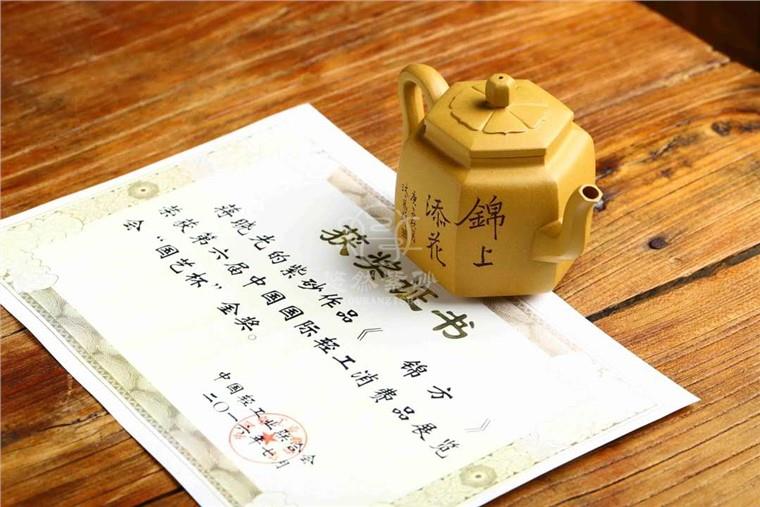 錦上
添花
获奖证书
蒋晓光的紫砂作品《 锦方 》
荣获第六届中国国际轻工消费品展览
会“国艺杯”金奖。
中国轻工业联合会
二〇一六年七月